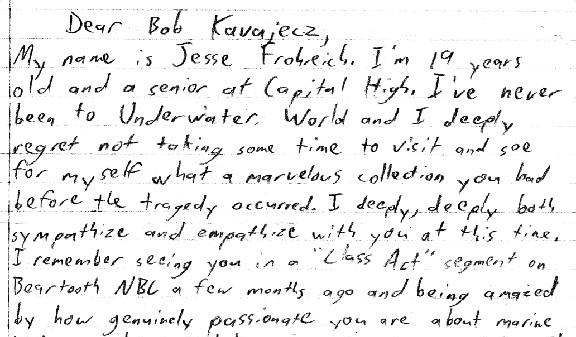 Dear Bob Kavajecz,
My name is Jesse Frohreich. I'm 19 years
old and a senior at Capital High. I've never
been to Underwater World and I deeply
regret not taking some time to visit and see
for myself what a marvelous collection you had
before the tragedy occurred. I deeply, deeply both
sympathize and empathize with you at this time.
I remember seeing you in a "Class Act" segment on
Beartooth NBC a few months ago and being amazed
by how genuinely passionate you are about marine